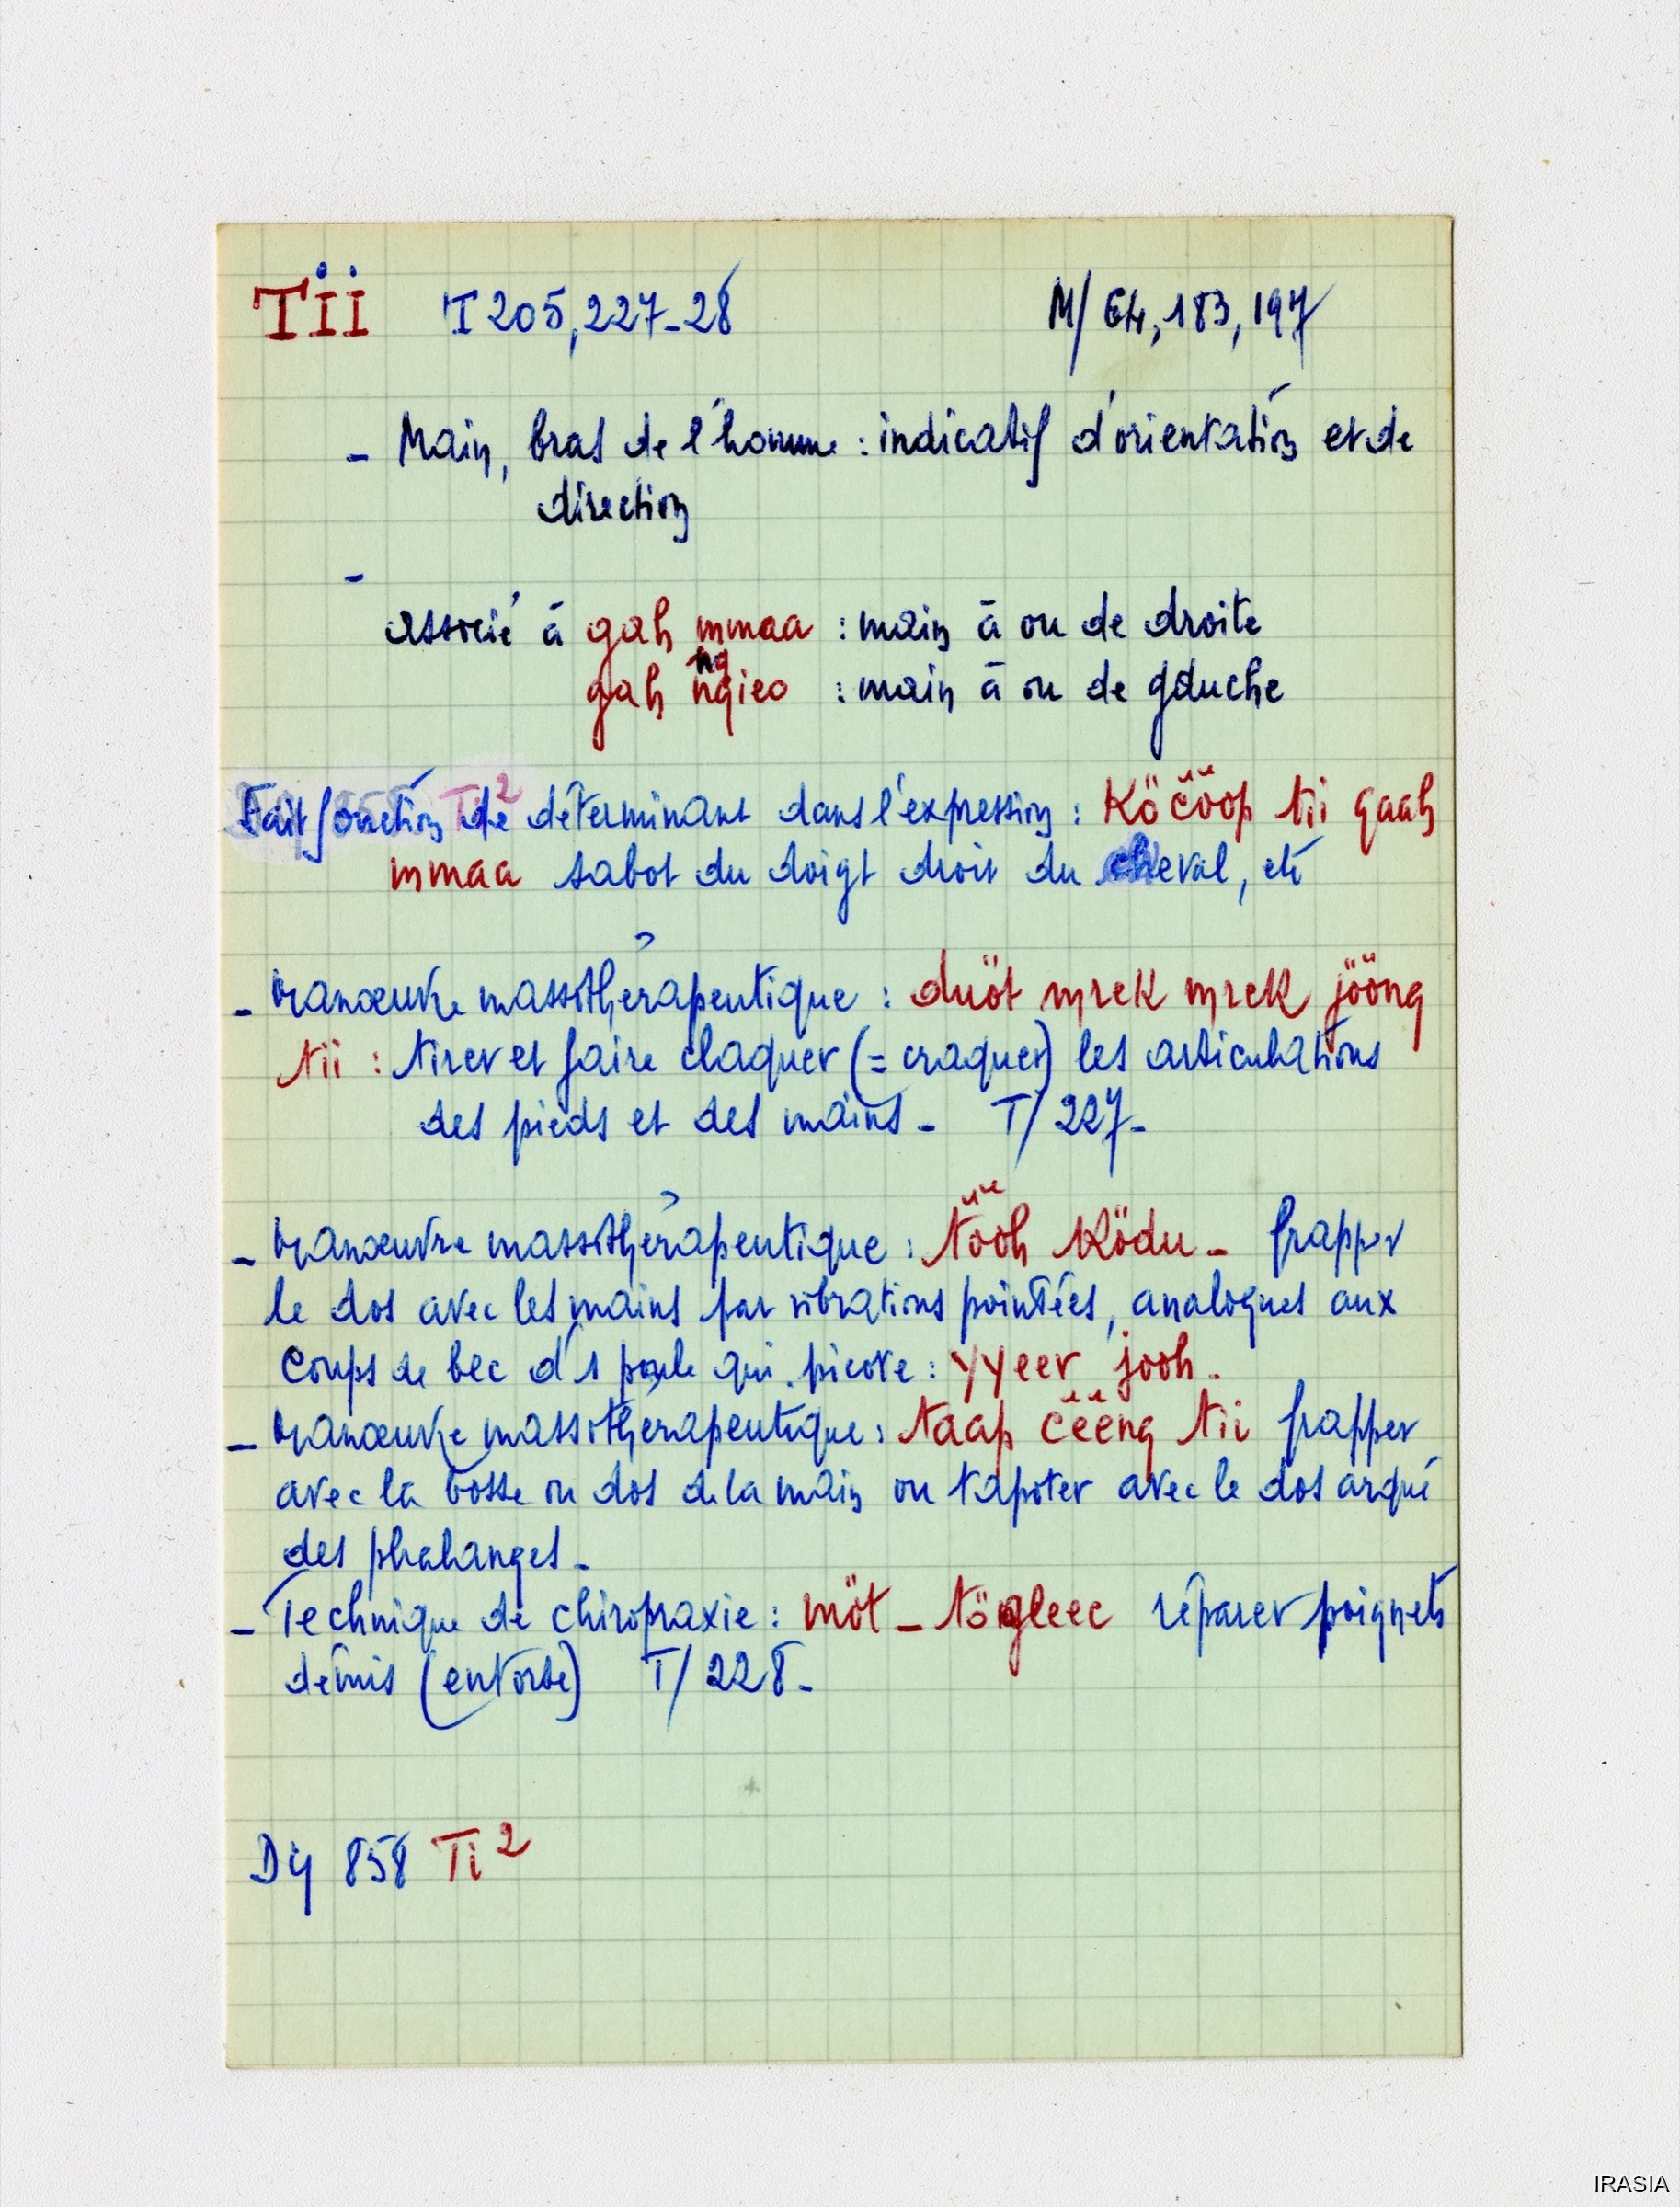 Tii T 205, 227-28 M/64, 183, 197
- Main, bras de l'homme : indicatif d'orientation et de
direction
-
associé à gah mmaa : main à ou de droite
gah ngieo : main à ou de gauche
Fait fonction de déterminant dans l'expression : Köčööp tii gaah
mmaa sabot du doigt droit du cheval, etc
- manœuvre massothérapeutique : duöt mrek mrek jööng
tii : tirer et faire claquer (= craquer) les articulations
des pieds et des mains - T/227-
- manœuvre massothérapeutique : tööh ködu - frapper
le dos avec les mains par vibrations pointées, analogues aux
coups de bec d'1 poule qui picore : yyeer jooh.
- manœuvre massothérapeutique : taap čëëng tii frapper
avec la bosse ou dos de la main ou tapoter avec le dos arqué
des phalanges -
- Technique de chiropraxie : möt - tögleec réparer poignets
démis (entorse) T/228-
Dy 858 Ti²
IRASIA